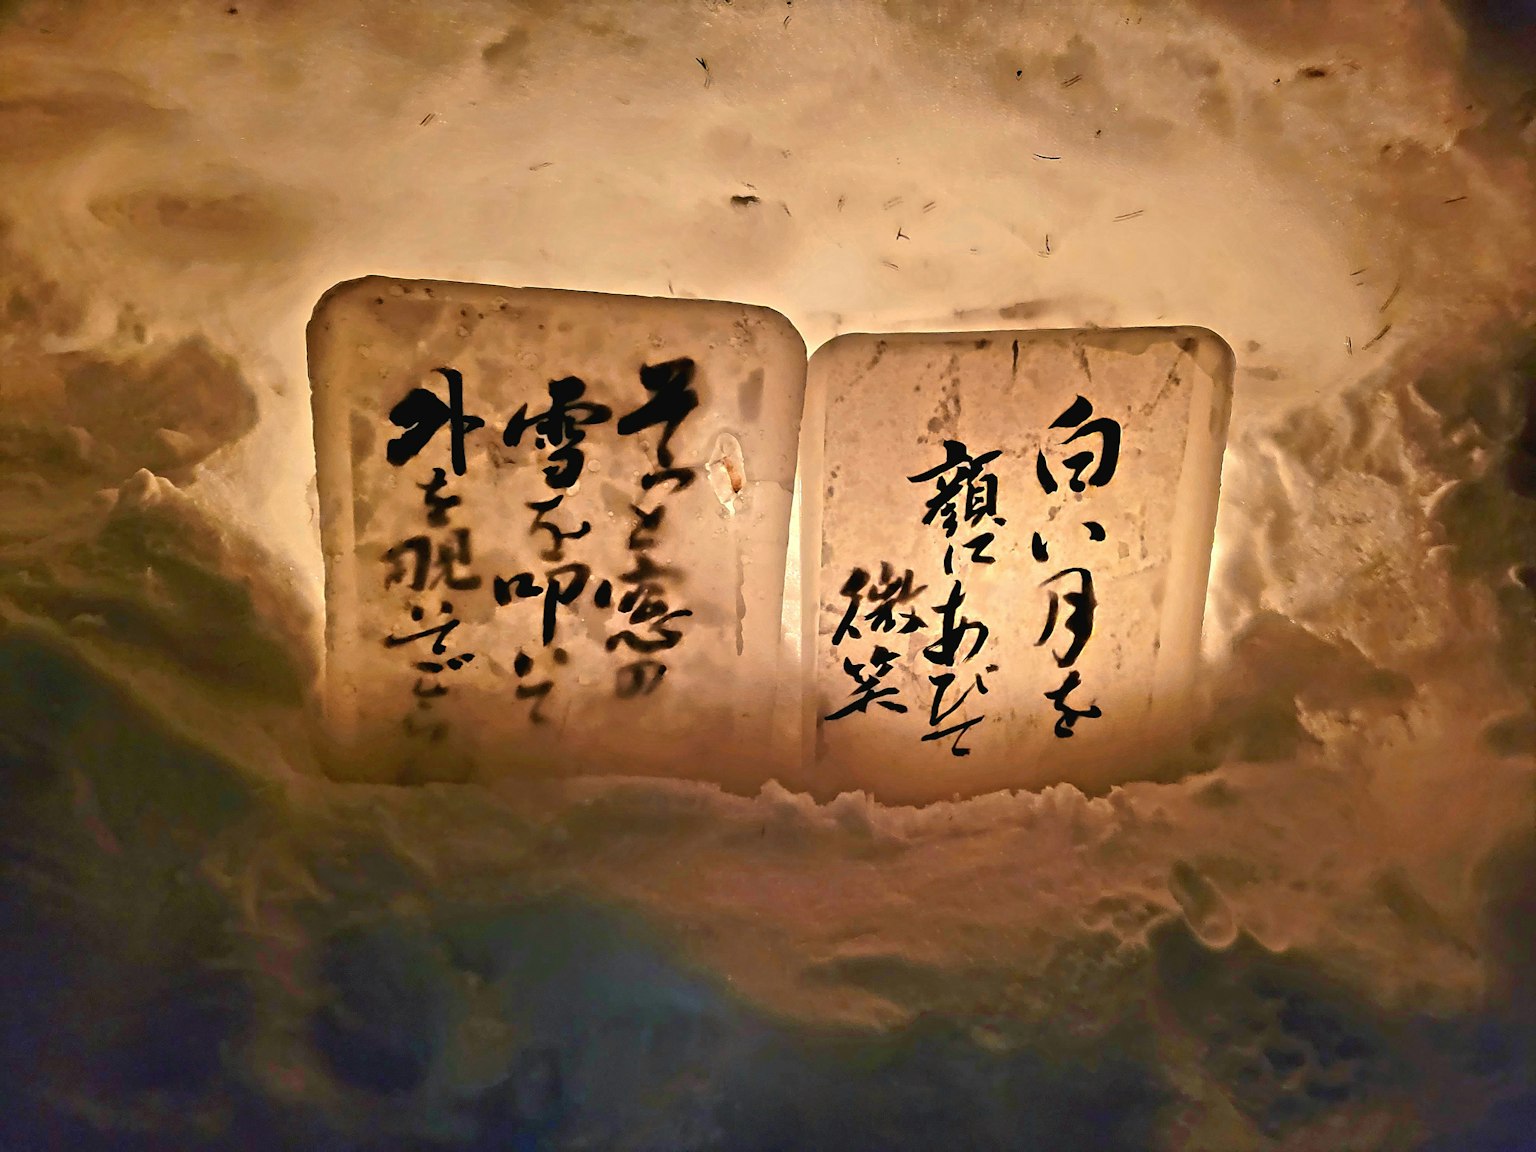 白い月を
顔にあびて
微笑
そっと窓の
雪を叩いて
外を覗